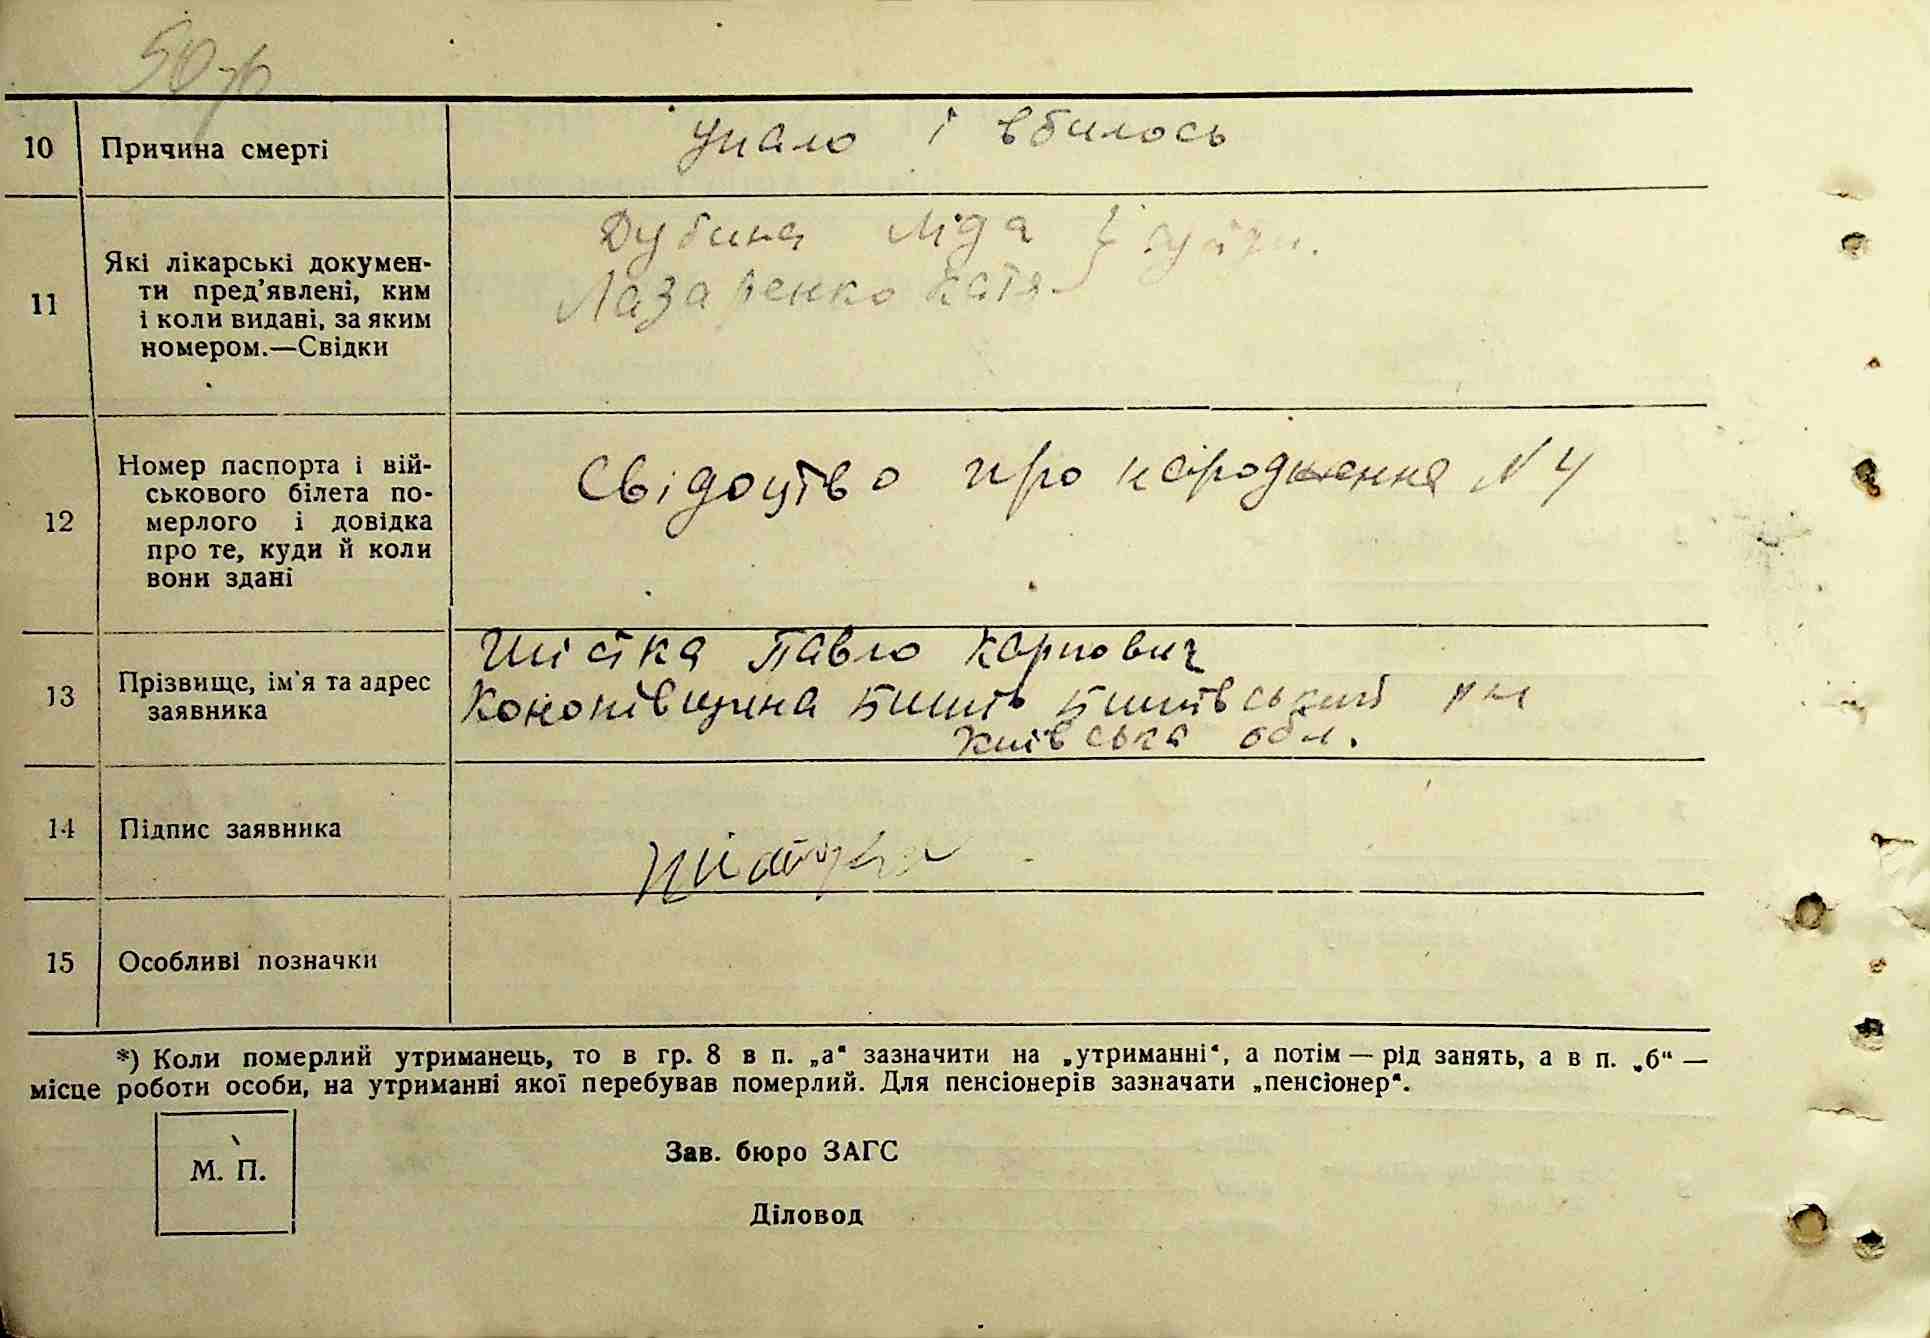 10 Причина смерті упало і вбилось
11 Які лікарські докумен-
ти пред'явлені, ким
і коли видані, за яким
номером.—Свідки
Дубина Ліда
Лазаренко Катя
12 Номер паспорта і вій-
ськового білета по-
мерлого і довідка
про те, куди й коли
вони здані
Свідоцтво про народження N 4
13 Прізвище, ім'я та адрес
заявника
Павло Карпович
Кононівщина Бишів Бишівський р-н
Київська обл.
14 Підпис заявника
15 Особливі позначки
*) Коли померлий утриманець, то в гр. 8 в п. „а“ зазначити на „утриманні“, а потім — рід занять, а в п. „б“ —
місце роботи особи, на утриманні якої перебував померлий. Для пенсіонерів зазначати „пенсіонер“.
М. П.
Зав. бюро ЗАГС
Діловод